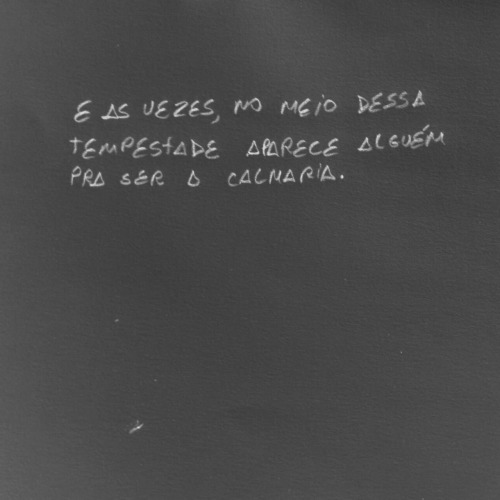 E AS VEZES, NO MEIO DESSA
TEMPESTADE APARECE ALGUÉM
PRA SER A CALMARIA.